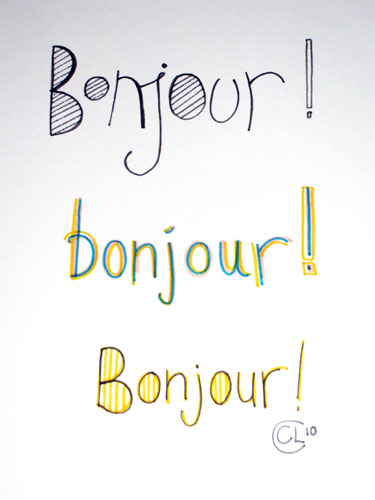 Bonjour!
bonjour!
Bonjour!
CL 10